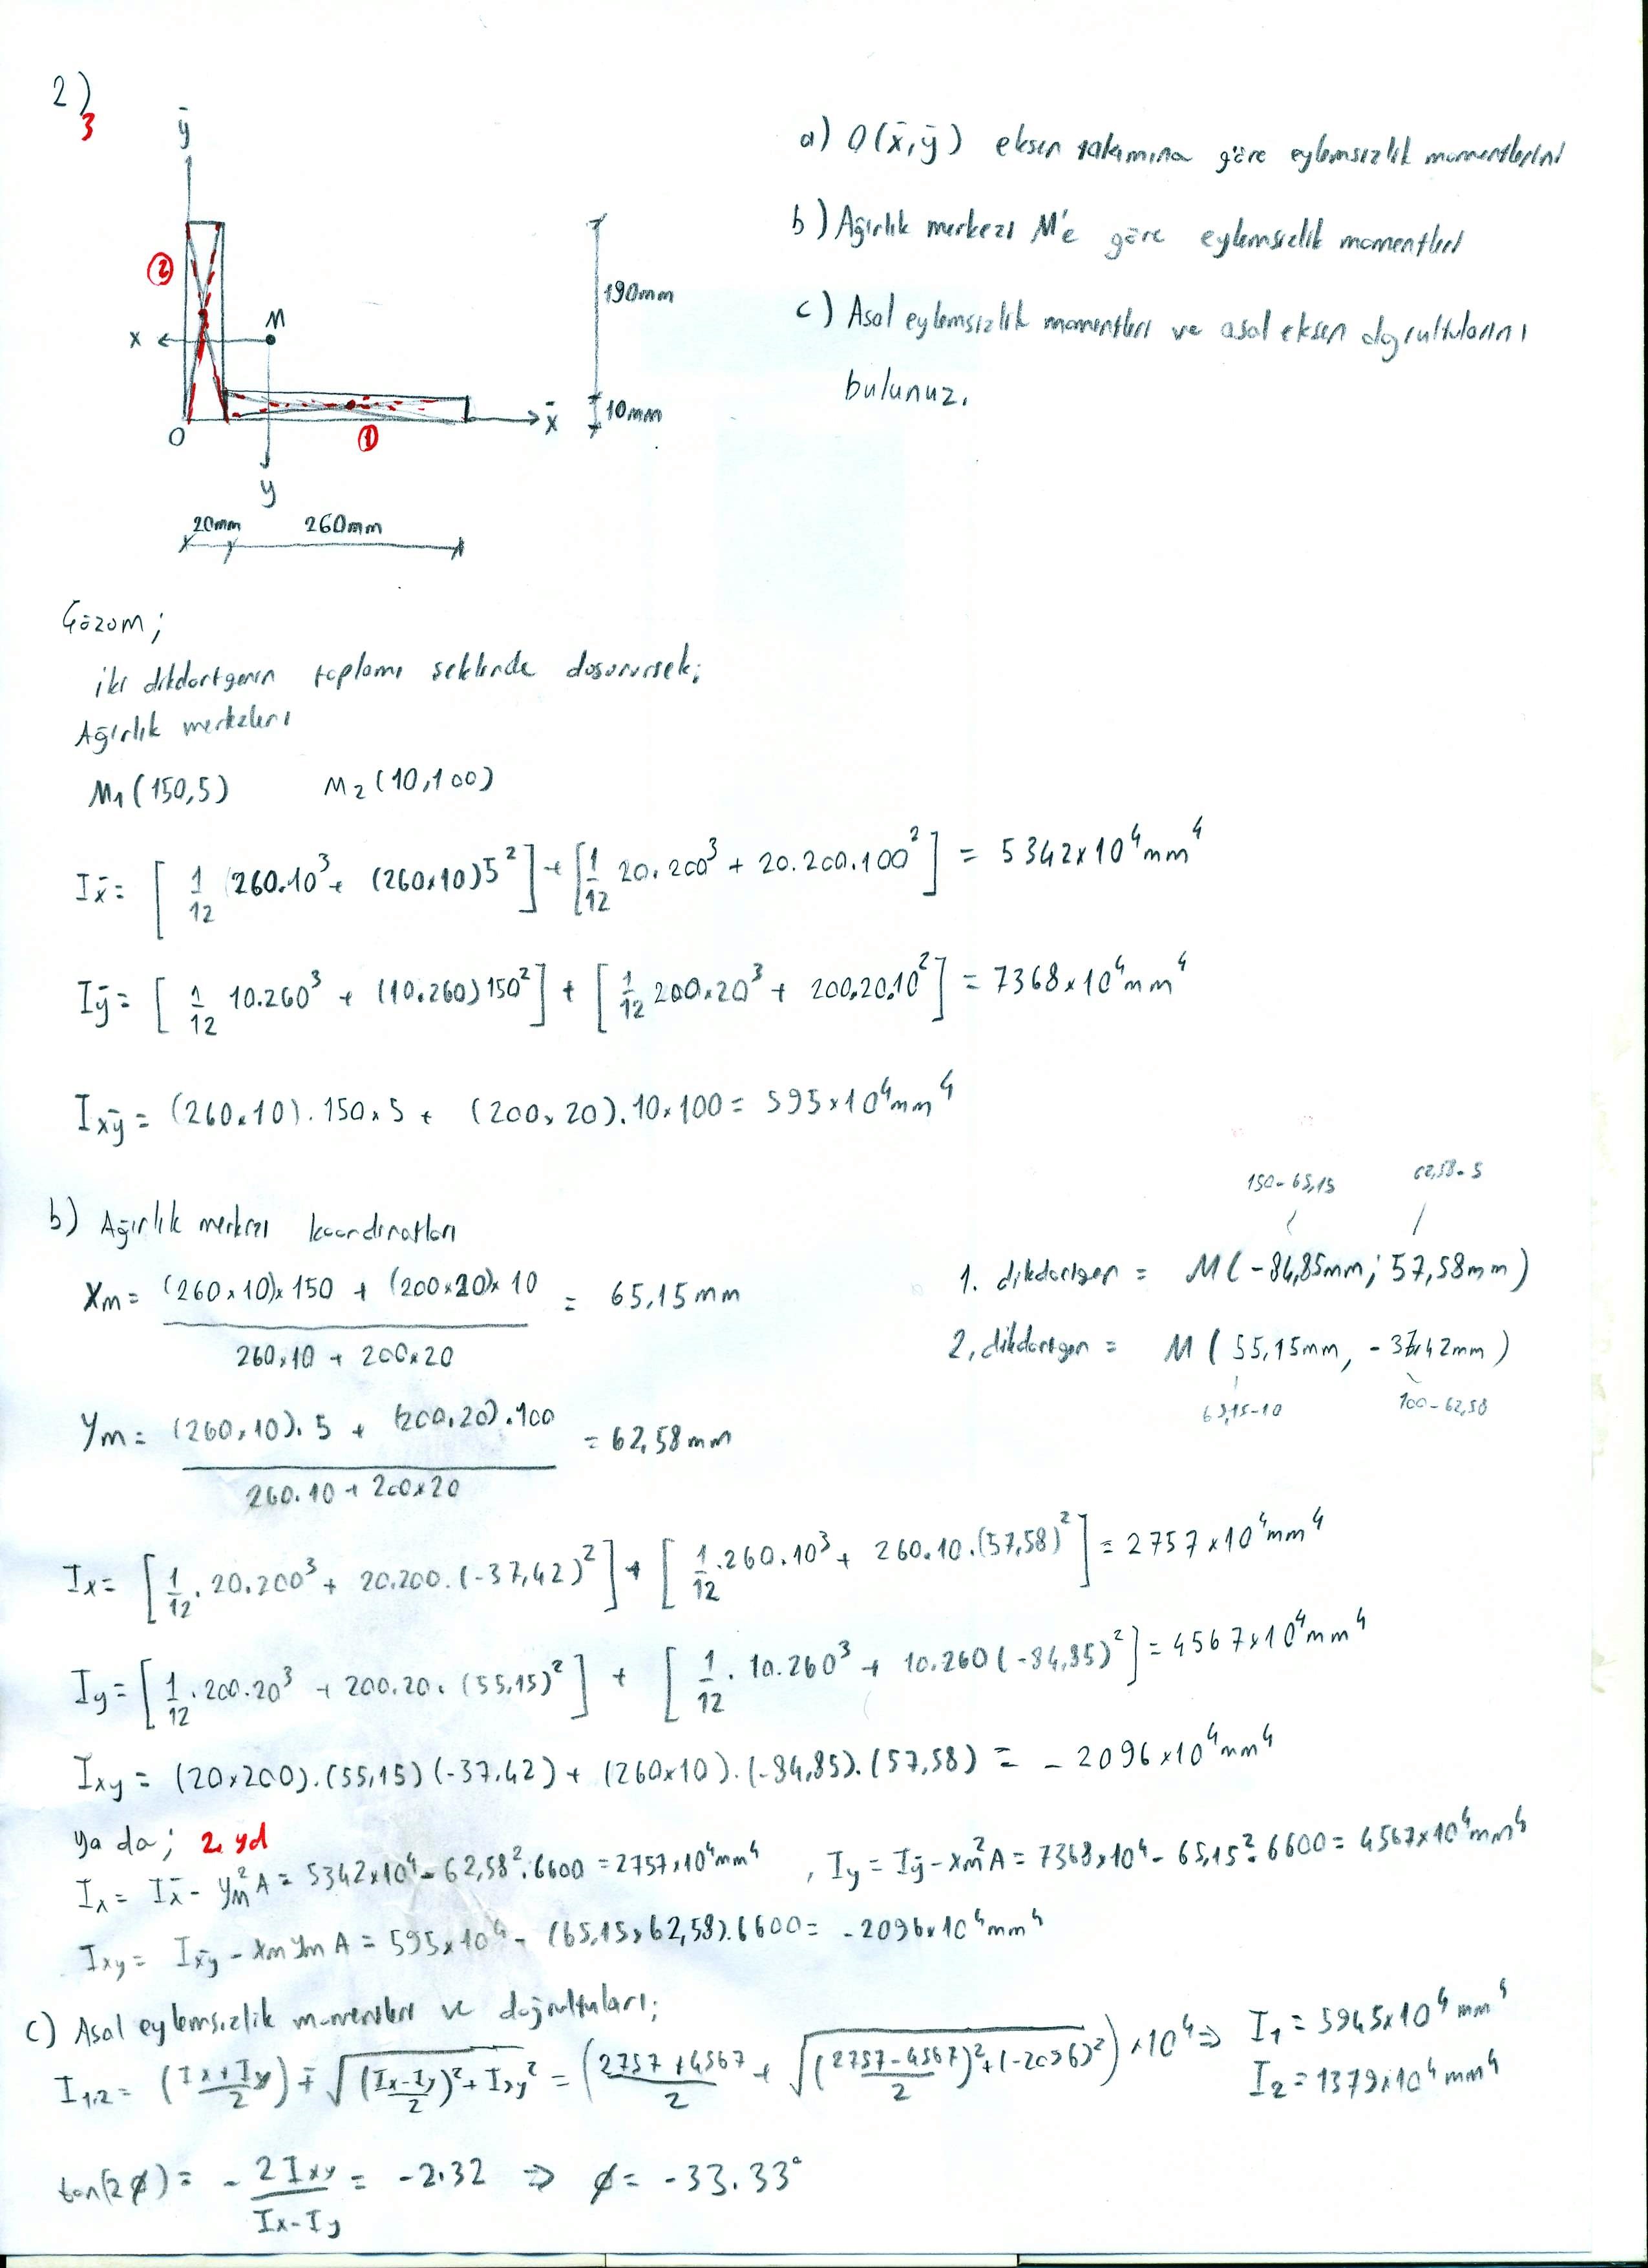 2)
3
ȳ
a) O(x̄,ȳ) eksen takımına göre eylemsizlik momentlerini
b) Ağırlık merkezi M'e göre eylemsizlik momentleri
c) Asal eylemsizlik momentleri ve asal eksen doğrultularını
bulunuz.
②
190mm
M
x
10mm
x̄
O
①
y
20mm 260mm
Çözüm;
iki dikdörtgenin toplamı şeklinde düşünürsek;
Ağırlık merkezleri
M1(150,5) M2(10,100)
Ix̄ = [1/12 260.10³ + (260x10)5²] + [1/12 20.200³ + 20.200.100²] = 5342x10⁴mm⁴
Iȳ = [1/12 10.260³ + (10.260)150²] + [1/12 200x20³ + 200.20.10²] = 7368x10⁴mm⁴
Ix̄ȳ = (260x10).150x5 + (200x20).10x100 = 595x10⁴mm⁴
b) Ağırlık merkezi koordinatları
Xm = (260x10)x150 + (200x20)x10 / 260x10 + 200x20 = 65,15mm
150-65,15 62,58-5
1. dikdörtgen = M(-84,85mm; 57,58mm)
2. dikdörtgen = M(55,15mm, -37,42mm)
65,15-10 100-62,58
Ym = (260x10).5 + (200.20).100 / 260.10 + 200x20 = 62,58mm
Ix = [1/12.20.200³ + 20.200.(-37,42)²] + [1/12.260.10³ + 260.10.(57,58)²] = 2757x10⁴mm⁴
Iy = [1/12.200.20³ + 200.20.(55,15)²] + [1/12.10.260³ + 10.260(-84,85)²] = 4567x10⁴mm⁴
Ixy = (20x200).(55,15)(-37.42) + (260x10).(-84,85).(57,58) = -2096x10⁴mm⁴
ya da; 2. yol
Ix = Ix̄ - Ym²A = 5342x10⁴ - 62,58².6600 = 2757x10⁴mm⁴, Iy = Iȳ - Xm²A = 7368x10⁴ - 65,15².6600 = 4567x10⁴mm⁴
Ixy = Ix̄ȳ - XmYmA = 595x10⁴ - (65,15x62,58).6600 = -2096x10⁴mm⁴
c) Asal eylemsizlik momentleri ve doğrultuları;
I1,2 = (Ix+Iy/2) ∓ √((Ix-Iy/2)² + Ixy²) = (2757+4567/2 + √((2757-4567/2)² + (-2096)²)) x10⁴ ⇒ I1 = 5945x10⁴mm⁴
I2 = 1379x10⁴mm⁴
tan(2ϕ) = - 2Ixy/Ix-Iy = -2.32 ⇒ ϕ = -33.33°